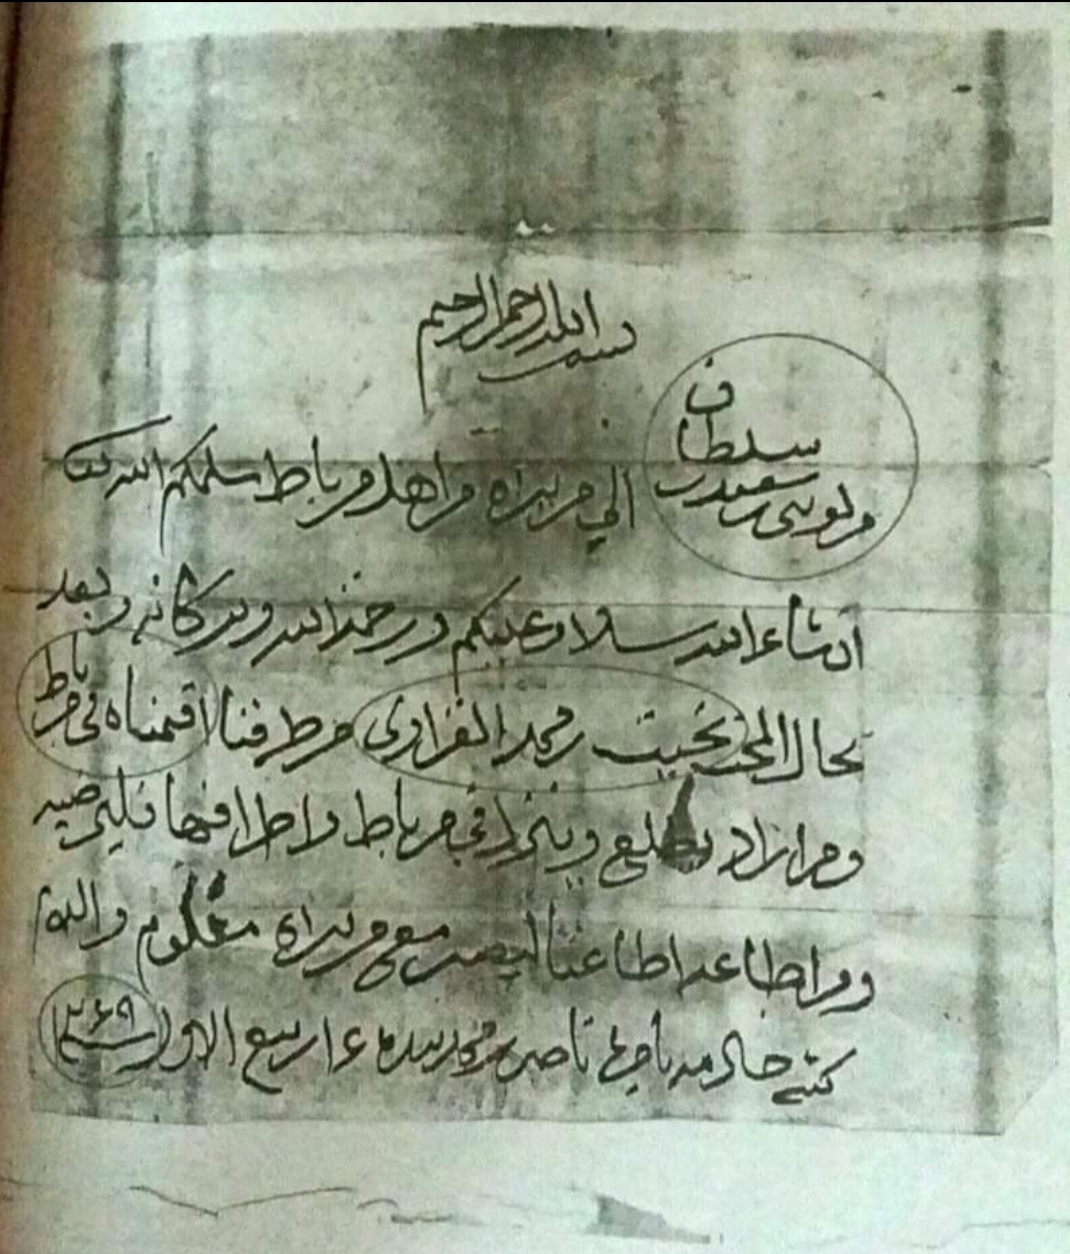 بسم الله الرحمن الرحيم
من ثويني بن سعيد بن سلطان
الي من يراه من اهل مرباط سلمكم الله تعا
انشاء الله سلام عليكم ورحمة الله وبركاته وبعد
حال المحب بخيت بن محمد من طرفنا اقمناه في مرباط
ومن اراد يطلع وينزل في مرباط واطرافها فليرضيه
ومن اطاعه اطاعنا ليصير مع من يراه معلوم والسلام
كتبه خادمه بامره ناصر بن محمد بيده ربيع الاول سنة